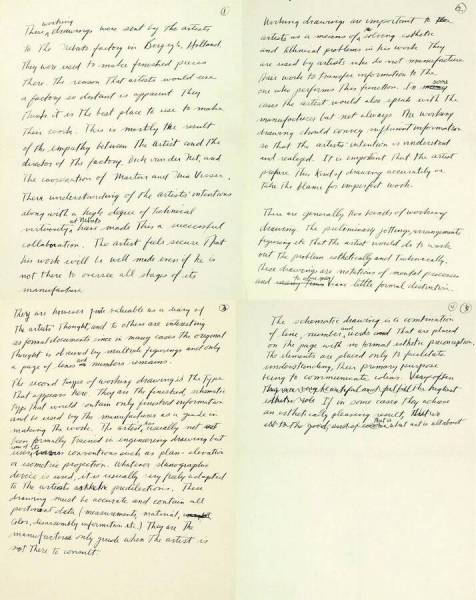 ①
working
These, drawings were sent by the artists
to the Nebato factory in Bergeyk, Holland.
They were used to make finished pieces
there. The reason that artists would use
a factory so distant is apparent they
think it is the best place to use to make
their work. This is mostly the result
of the empathy between the artist and the
director of the factory, Dick van der Net and
the cooperation of Martin and Mia Visser.
Their understanding of the artists' intentions
along with a high degree of technical
at Nebato
virtuosity, has made this a successful
collaboration. The artist feels secure that
his work will be well made even if he is
not there to oversee all stages of its
manufacture
②
Working drawings are important to
artists as a means of solving esthetic
and technical problems in his work. They
are used by artists who do not manufacture
their work to transfer information to the
one who performs this function. In some
cases the artist would also speak with the
manufacturer but not always. The working
drawing should convey sufficient information
so that the artists' intention is understood
and realized. It is important that the artist
prepare this kind of drawing accurately or
take the blame for imperfect work.
There are generally two kinds of working
drawing. The preliminary jottings, arrangements
figuring etc that the artist would do to work
out the problem esthetically and technically.
These drawings are notations of mental processes
and little formal destination.
③
They are however quite valuable as a diary of
the artists thought and to others are interesting
as formal documents since in many cases the original
thought is obscured by multiple figurings and only
a page of lines and numbers remains.
The second type of working drawing is the type
that appears here. They are the finished schematic
type that would contain only finished information
and is used by the manufacturer as a guide in
making the work. The artist, has usually not
been formally trained in engineering drawing but
uses various conventions such as plan-elevation
or isometric projection. Whatever stenographic
device is used, it is usually very freely adapted
to the artists esthetic predilections. These
drawing must be accurate and contain all
pertinent data (measurements, material,
color, disassembly information etc.) They are the
manufacturers only guide when the artist is
not there to consult.
④
The schematic drawing is a combination
of line, number, and words that are placed
on the page with no formal esthetic preconception.
The elements are placed only to facilitate
understanding, their primary purpose
being to communicate ideas.
If in some cases they achieve
an esthetically pleasing result,
all to the good, that is what art is all about